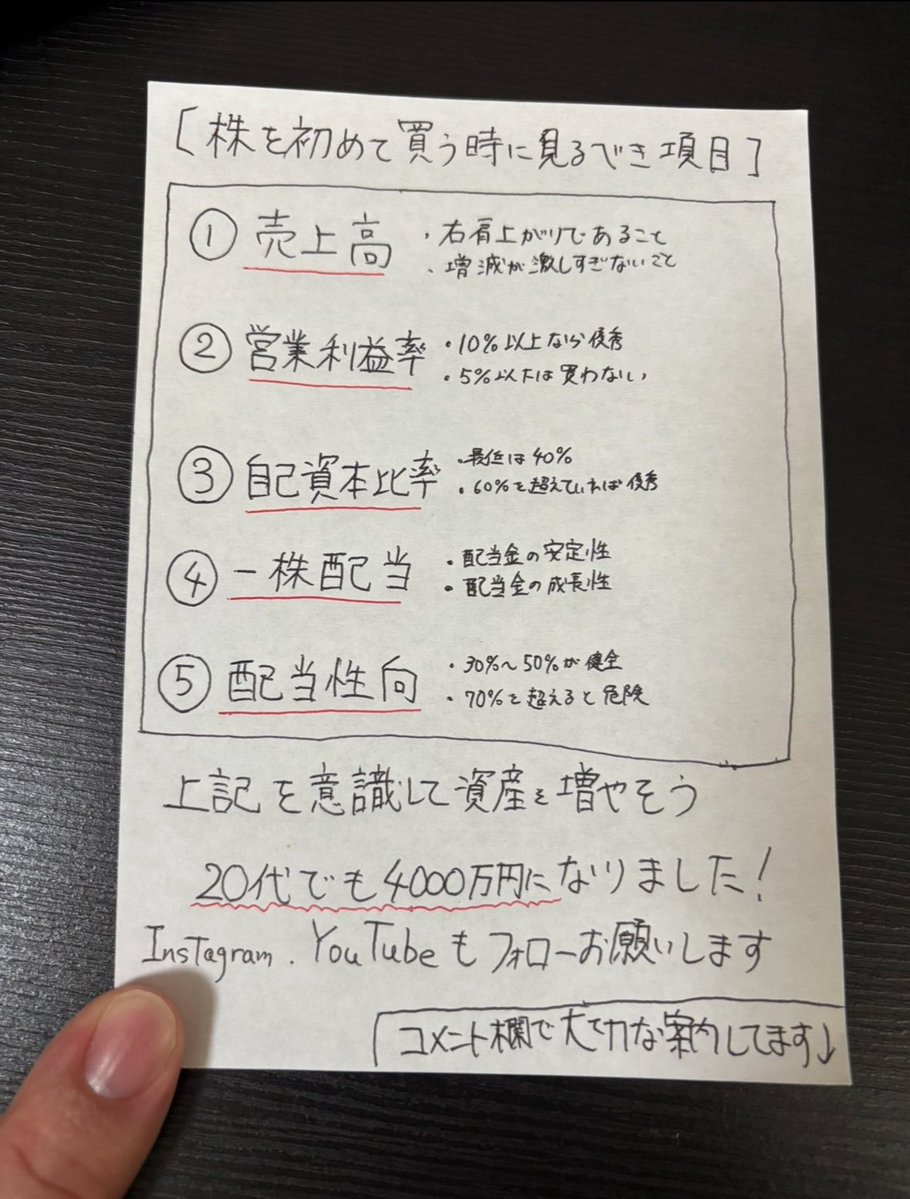 [株を初めて買う時に見るべき項目]
① 売上高
・右肩上がりであること
・増減が激しすぎないこと
② 営業利益率
・10%以上なら優秀
・5%以下は買わない
③ 自己資本比率
・最低は40%
・60%を超えていれば優秀
④ 一株配当
・配当金の安定性
・配当金の成長性
⑤ 配当性向
・30%~50%が健全
・70%を超えると危険
上記を意識して資産を増やそう
20代でも4000万円になりました!
InsTagram.YouTubeもフォローお願いします
コメント欄で大切な案内してます↓